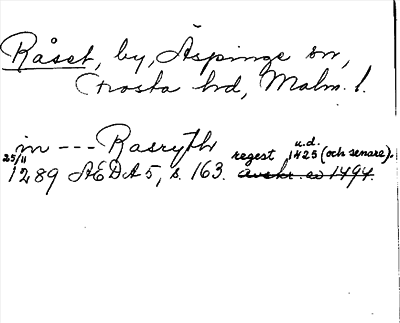 Råset, by, Äspinge sn,
Frosta hd, Malm. l.
in --- Rasryth
u.d.
25/11 1289 AEDA 5, s. 163. regest 1425 (och senare).
avskr. av 1494.